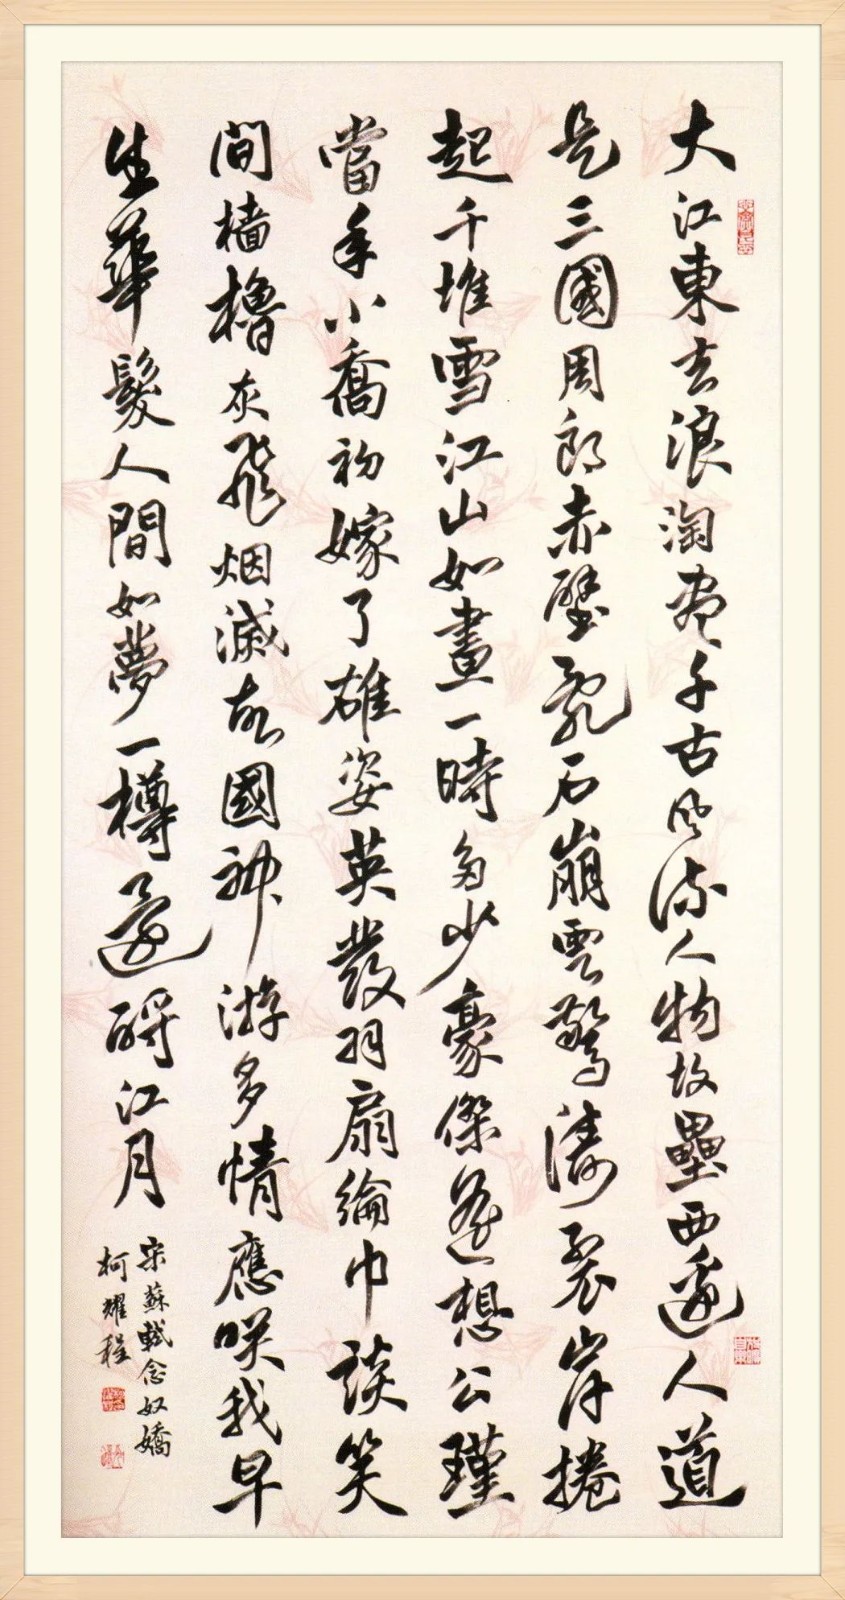 大江東去浪淘盡千古風流人物故壘西邊人道
是三國周郎赤壁亂石崩雲驚濤裂岸捲
起千堆雪江山如畫一時多少豪傑遙想公瑾
當年小喬初嫁了雄姿英發羽扇綸巾談笑
間檣櫓灰飛烟滅故國神游多情應咲我早
生華髮人間如夢一樽還酹江月
宋蘇軾念奴嬌
柯耀程